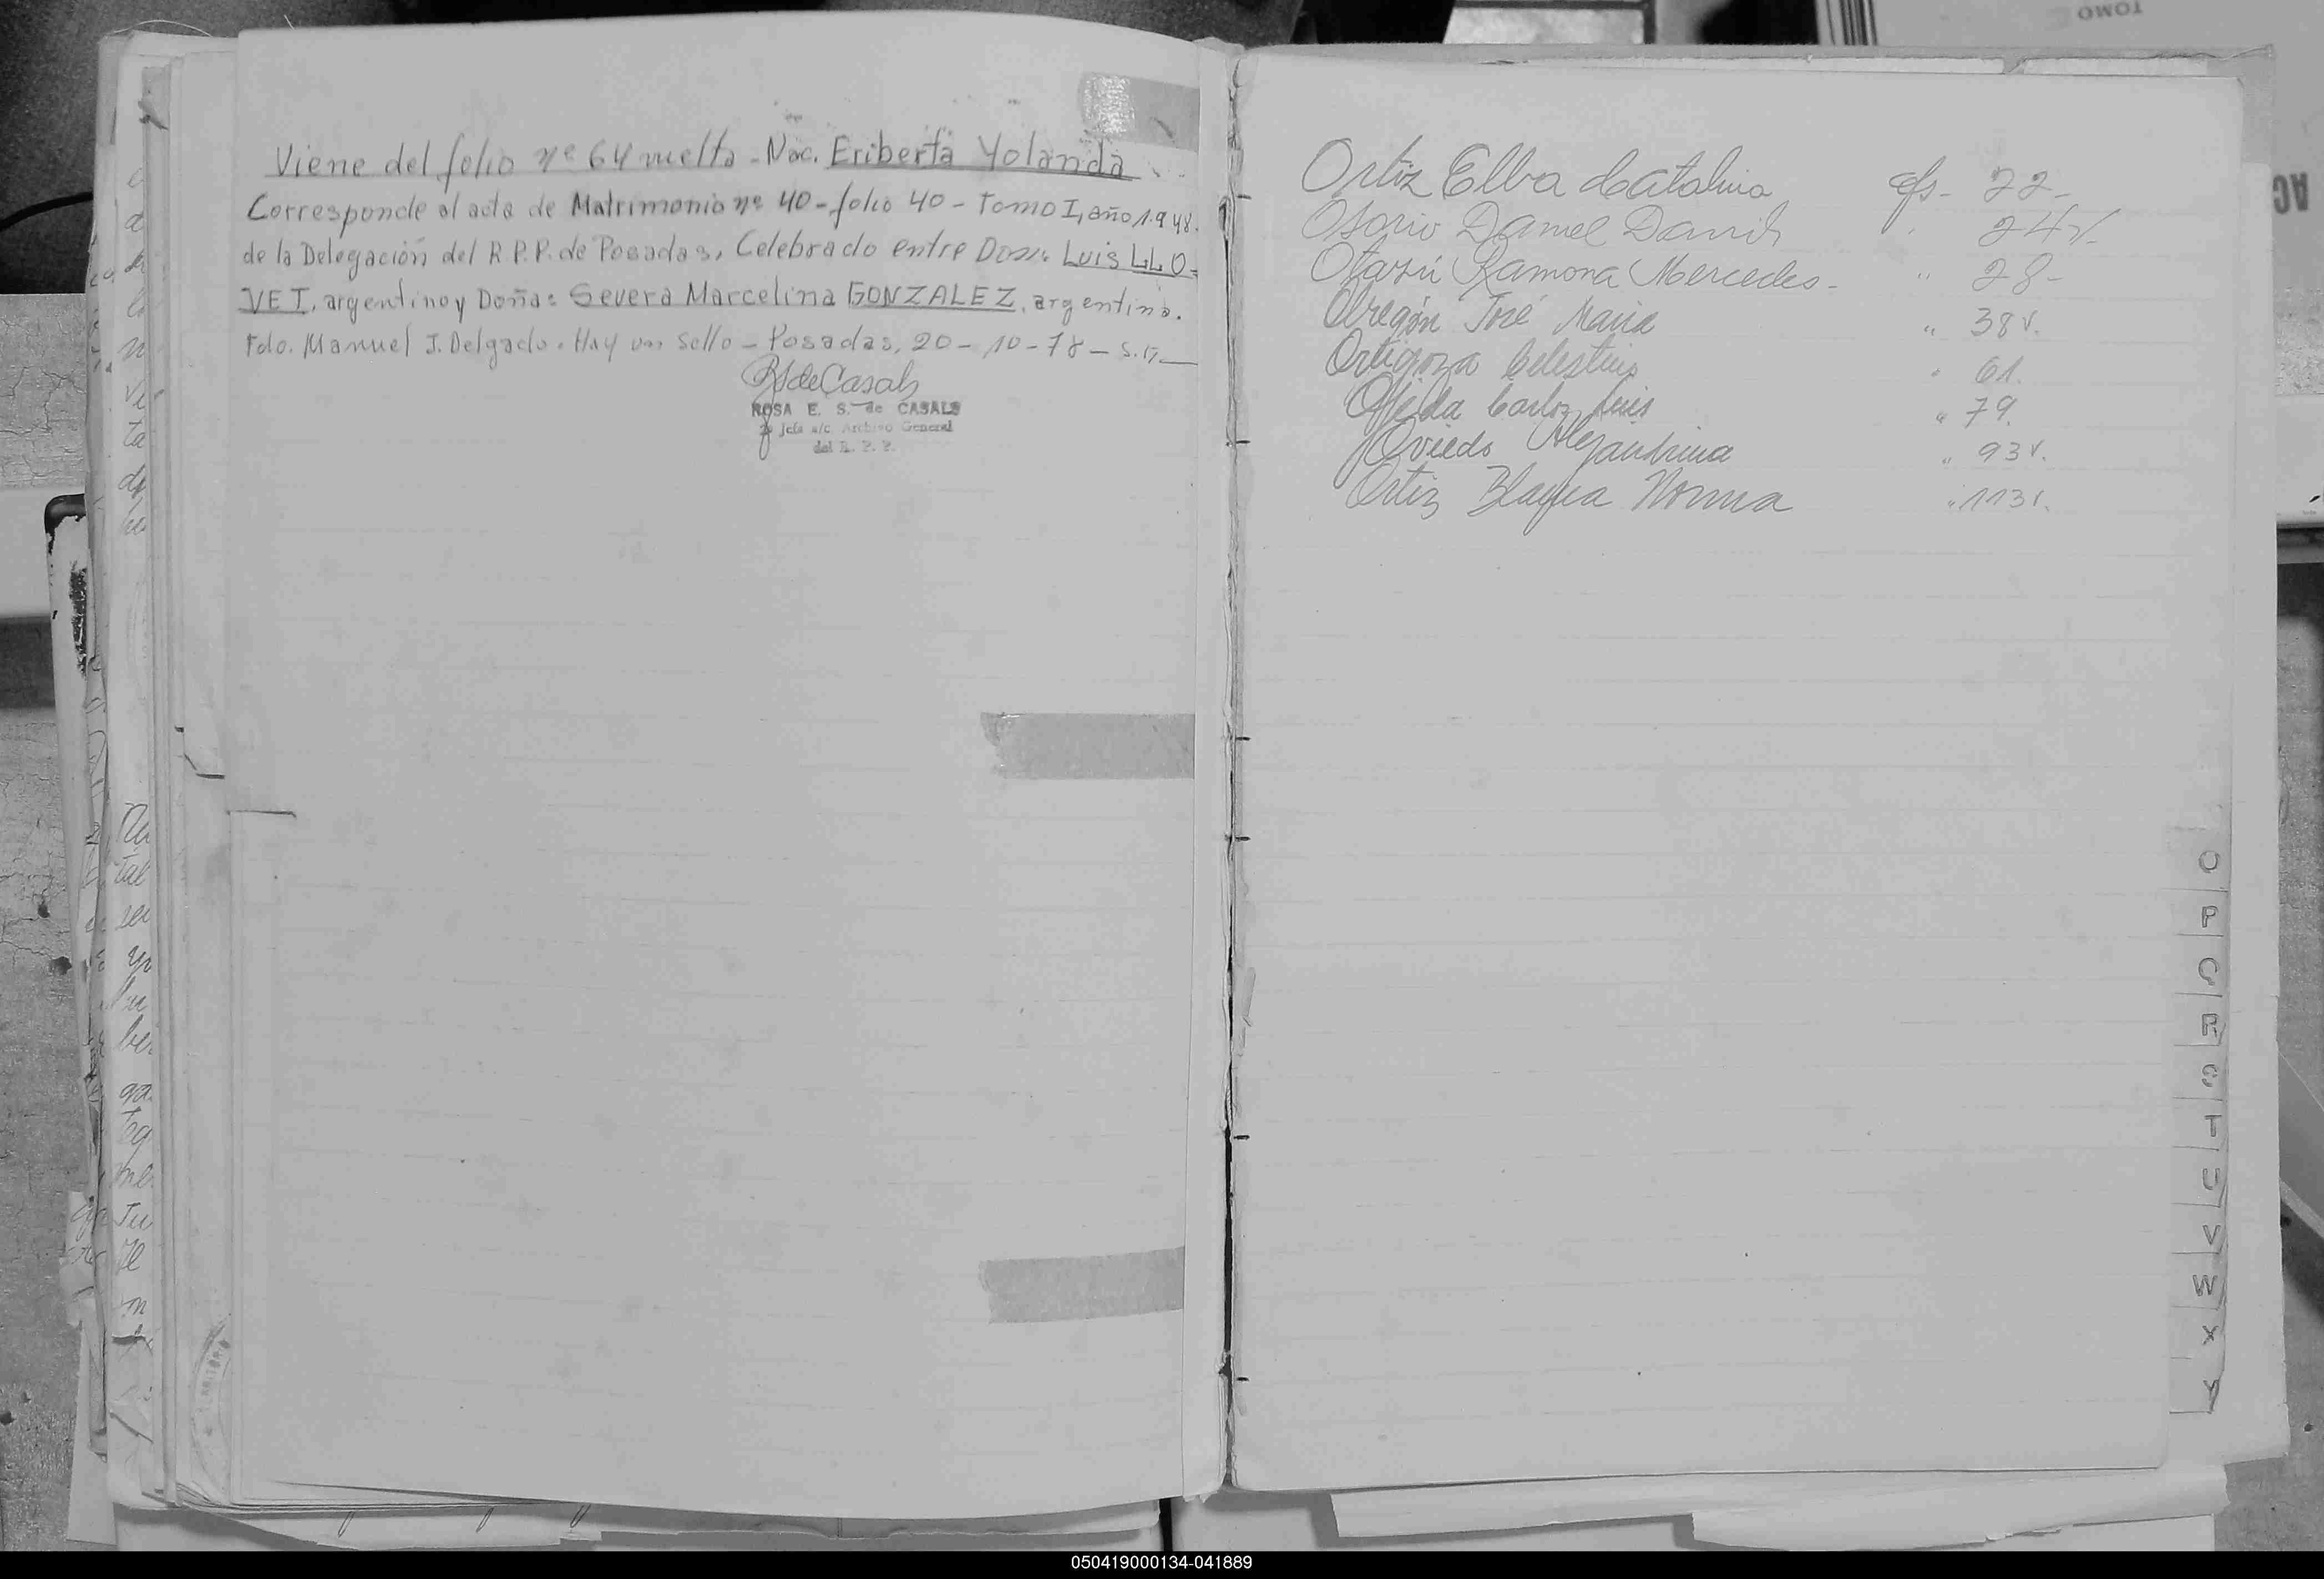 Viene del folio nº 64 vuelta - Nac. Eriberta Yolanda
Corresponde al acta de Matrimonio nº 40 - folio 40 - Tomo I, año 1.948.
de la Delegación del R.P.P. de Posadas, Celebrado entre Don: Luis LLO=
VET, argentino y Doña: Severa Marcelina GONZALEZ, argentina.
Fdo. Manuel J. Delgado. Hay un sello - Posadas, 20 - 10 - 78 -
ROSA E. S. de CASALS
Jefa a/c. Archivo General
del R. P. P.
Ortiz Elba Catalina fs - 22 -
Osorio Daniel David 24 v.
Otazú Ramona Mercedes - " 28 -
Obregón José María " 38 v.
Ortigoza Celestino " 61.
Ojeda Carlos Luis " 79.
Oviedo Alejandrina " 93 v.
Ortiz Blanca Norma " 113 v.
O
P
Q
R
S
T
U
V
W
X
Y
TOMO
050419000134-041889